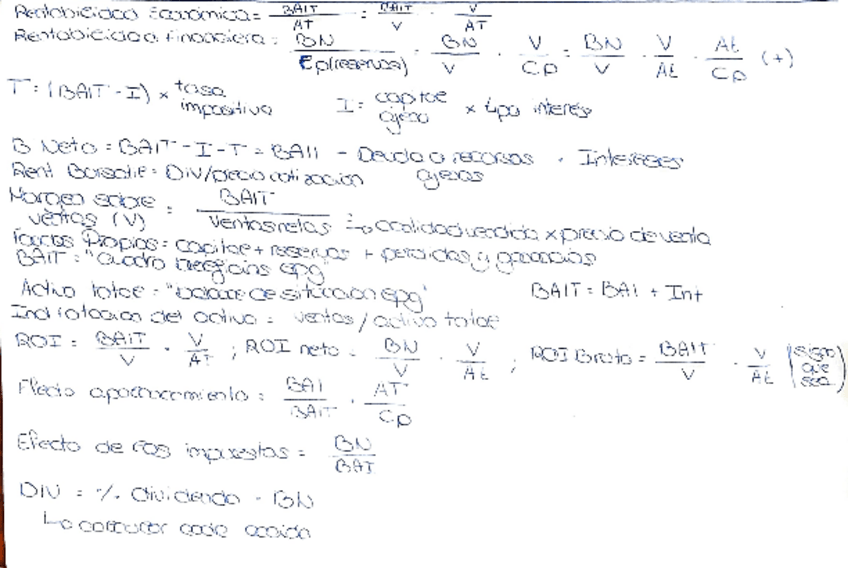 Rentabilidad Económica = BAIT / AT = BAIT / V · V / AT
Rentabilidad Financiera = BN / Cp(reservas) = BN / V · V / CP = BN / V · V / At · At / CP (+)
T = (BAIT - I) x tasa impositiva I = capital ajeno x tipo interés
B Neto = BAIT - I - T = BAII - Deuda o recursos ajenos · Intereses
Rent Bursatil = DIV/precio cotización
Margen sobre ventas (V) = BAIT / Ventas netas → cantidad vendida x precio de venta
Fondos Propios = capital + reservas + perdidas y ganancias
BAIT = "cuadro
Activo total = "balance de situacion BAIT = BAI + Int
Ind rotacion del activo = ventas / activo total
ROI = BAIT / V · V / AT ; ROI neto = BN / V · V / At ; ROI Bruto = BAIT / V · V / At
Efecto apalancamiento = BAI / BAIT · AT / CP
Efecto de los impuestos = BN / BAI
DIV = % dividendo · BN
↳ calcular cada